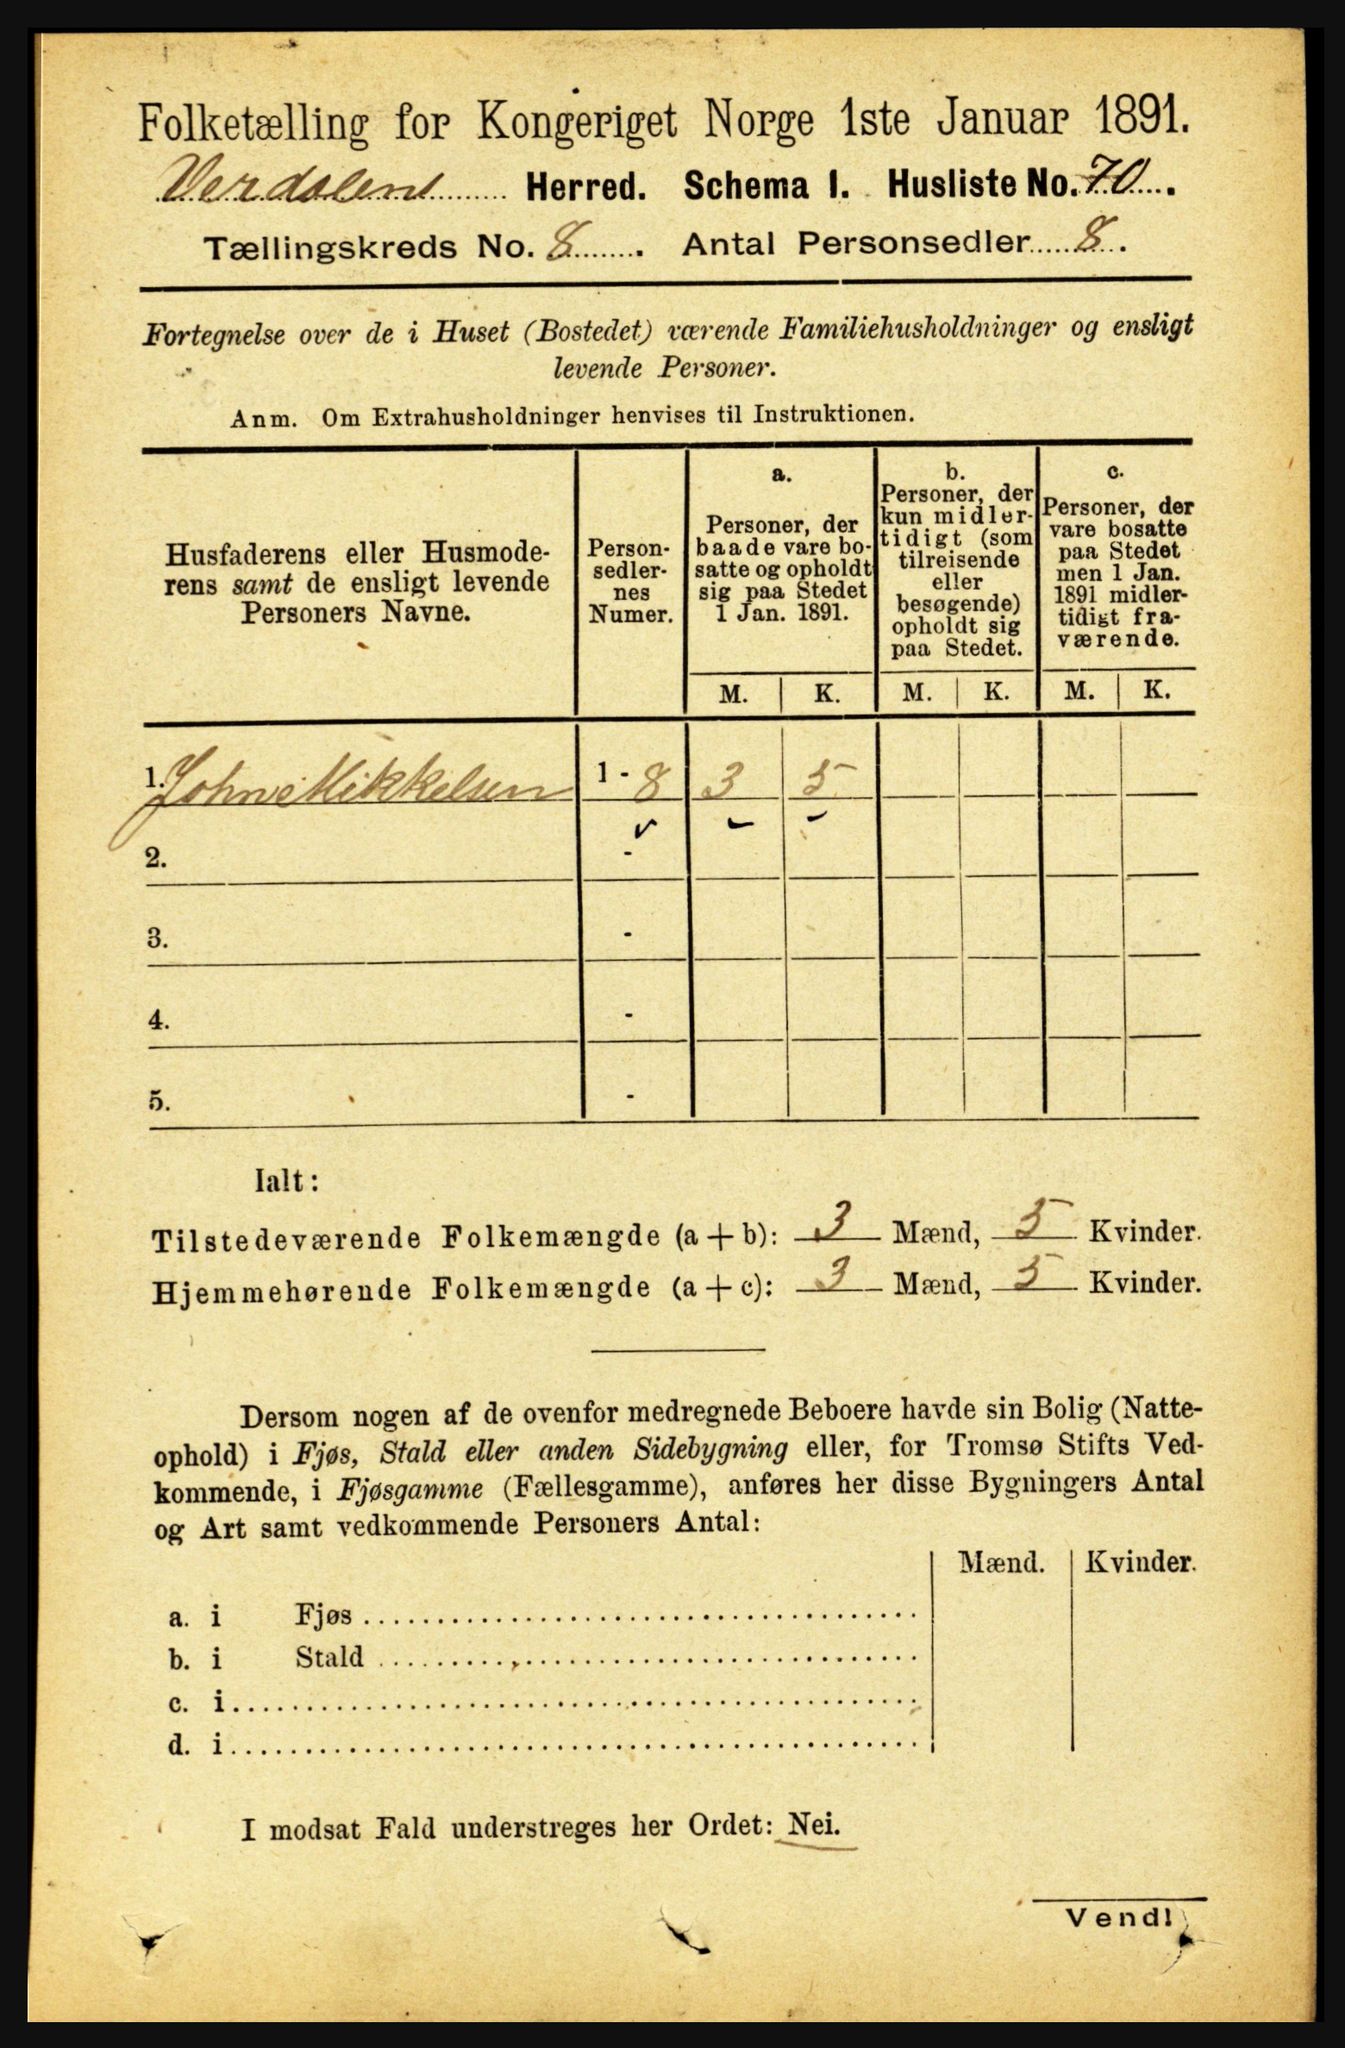 Folketælling for Kongeriget Norge 1ste Januar 1891.
Verdalens Herred. Schema 1. Husliste No. 70.
Tællingskreds No. 8. Antal Personsedler 8.
Fortegnelse over de i Huset (Bostedet) værende Familiehusholdninger og ensligt
levende Personer.
Anm. Om Extrahusholdninger henvises til Instruktionen.
Husfaderens eller Husmode-
rens samt de ensligt levende
Personers Navne.
Person-
sedler-
nes
Numer.
a.
Personer, der
baade vare bo-
satte og opholdt
sig paa Stedet
1 Jan. 1891.
b.
Personer, der
kun midler-
tidigt (som
tilreisende
eller
besøgende)
opholdt sig
paa Stedet.
c.
Personer, der
vare bosatte
paa Stedet
men 1 Jan.
1891 midler-
tidigt fra-
værende.
M. K. M. K. M. K.
1. John Mikkelsen 1 - 8 3 5
2. -
3. -
4. -
5. -
Ialt:
Tilstedeværende Folkemængde (a + b): 3 Mænd, 5 Kvinder.
Hjemmehørende Folkemængde (a + c): 3 Mænd, 5 Kvinder.
Dersom nogen af de ovenfor medregnede Beboere havde sin Bolig (Natte-
ophold) i Fjøs, Stald eller anden Sidebygning eller, for Tromsø Stifts Ved-
kommende, i Fjøsgamme (Fællesgamme), anføres her disse Bygningers Antal
og Art samt vedkommende Personers Antal:
Mænd. Kvinder.
a. i Fjøs
b. i Stald
c. i
d. i
I modsat Fald understreges her Ordet: Nei.
Vend!